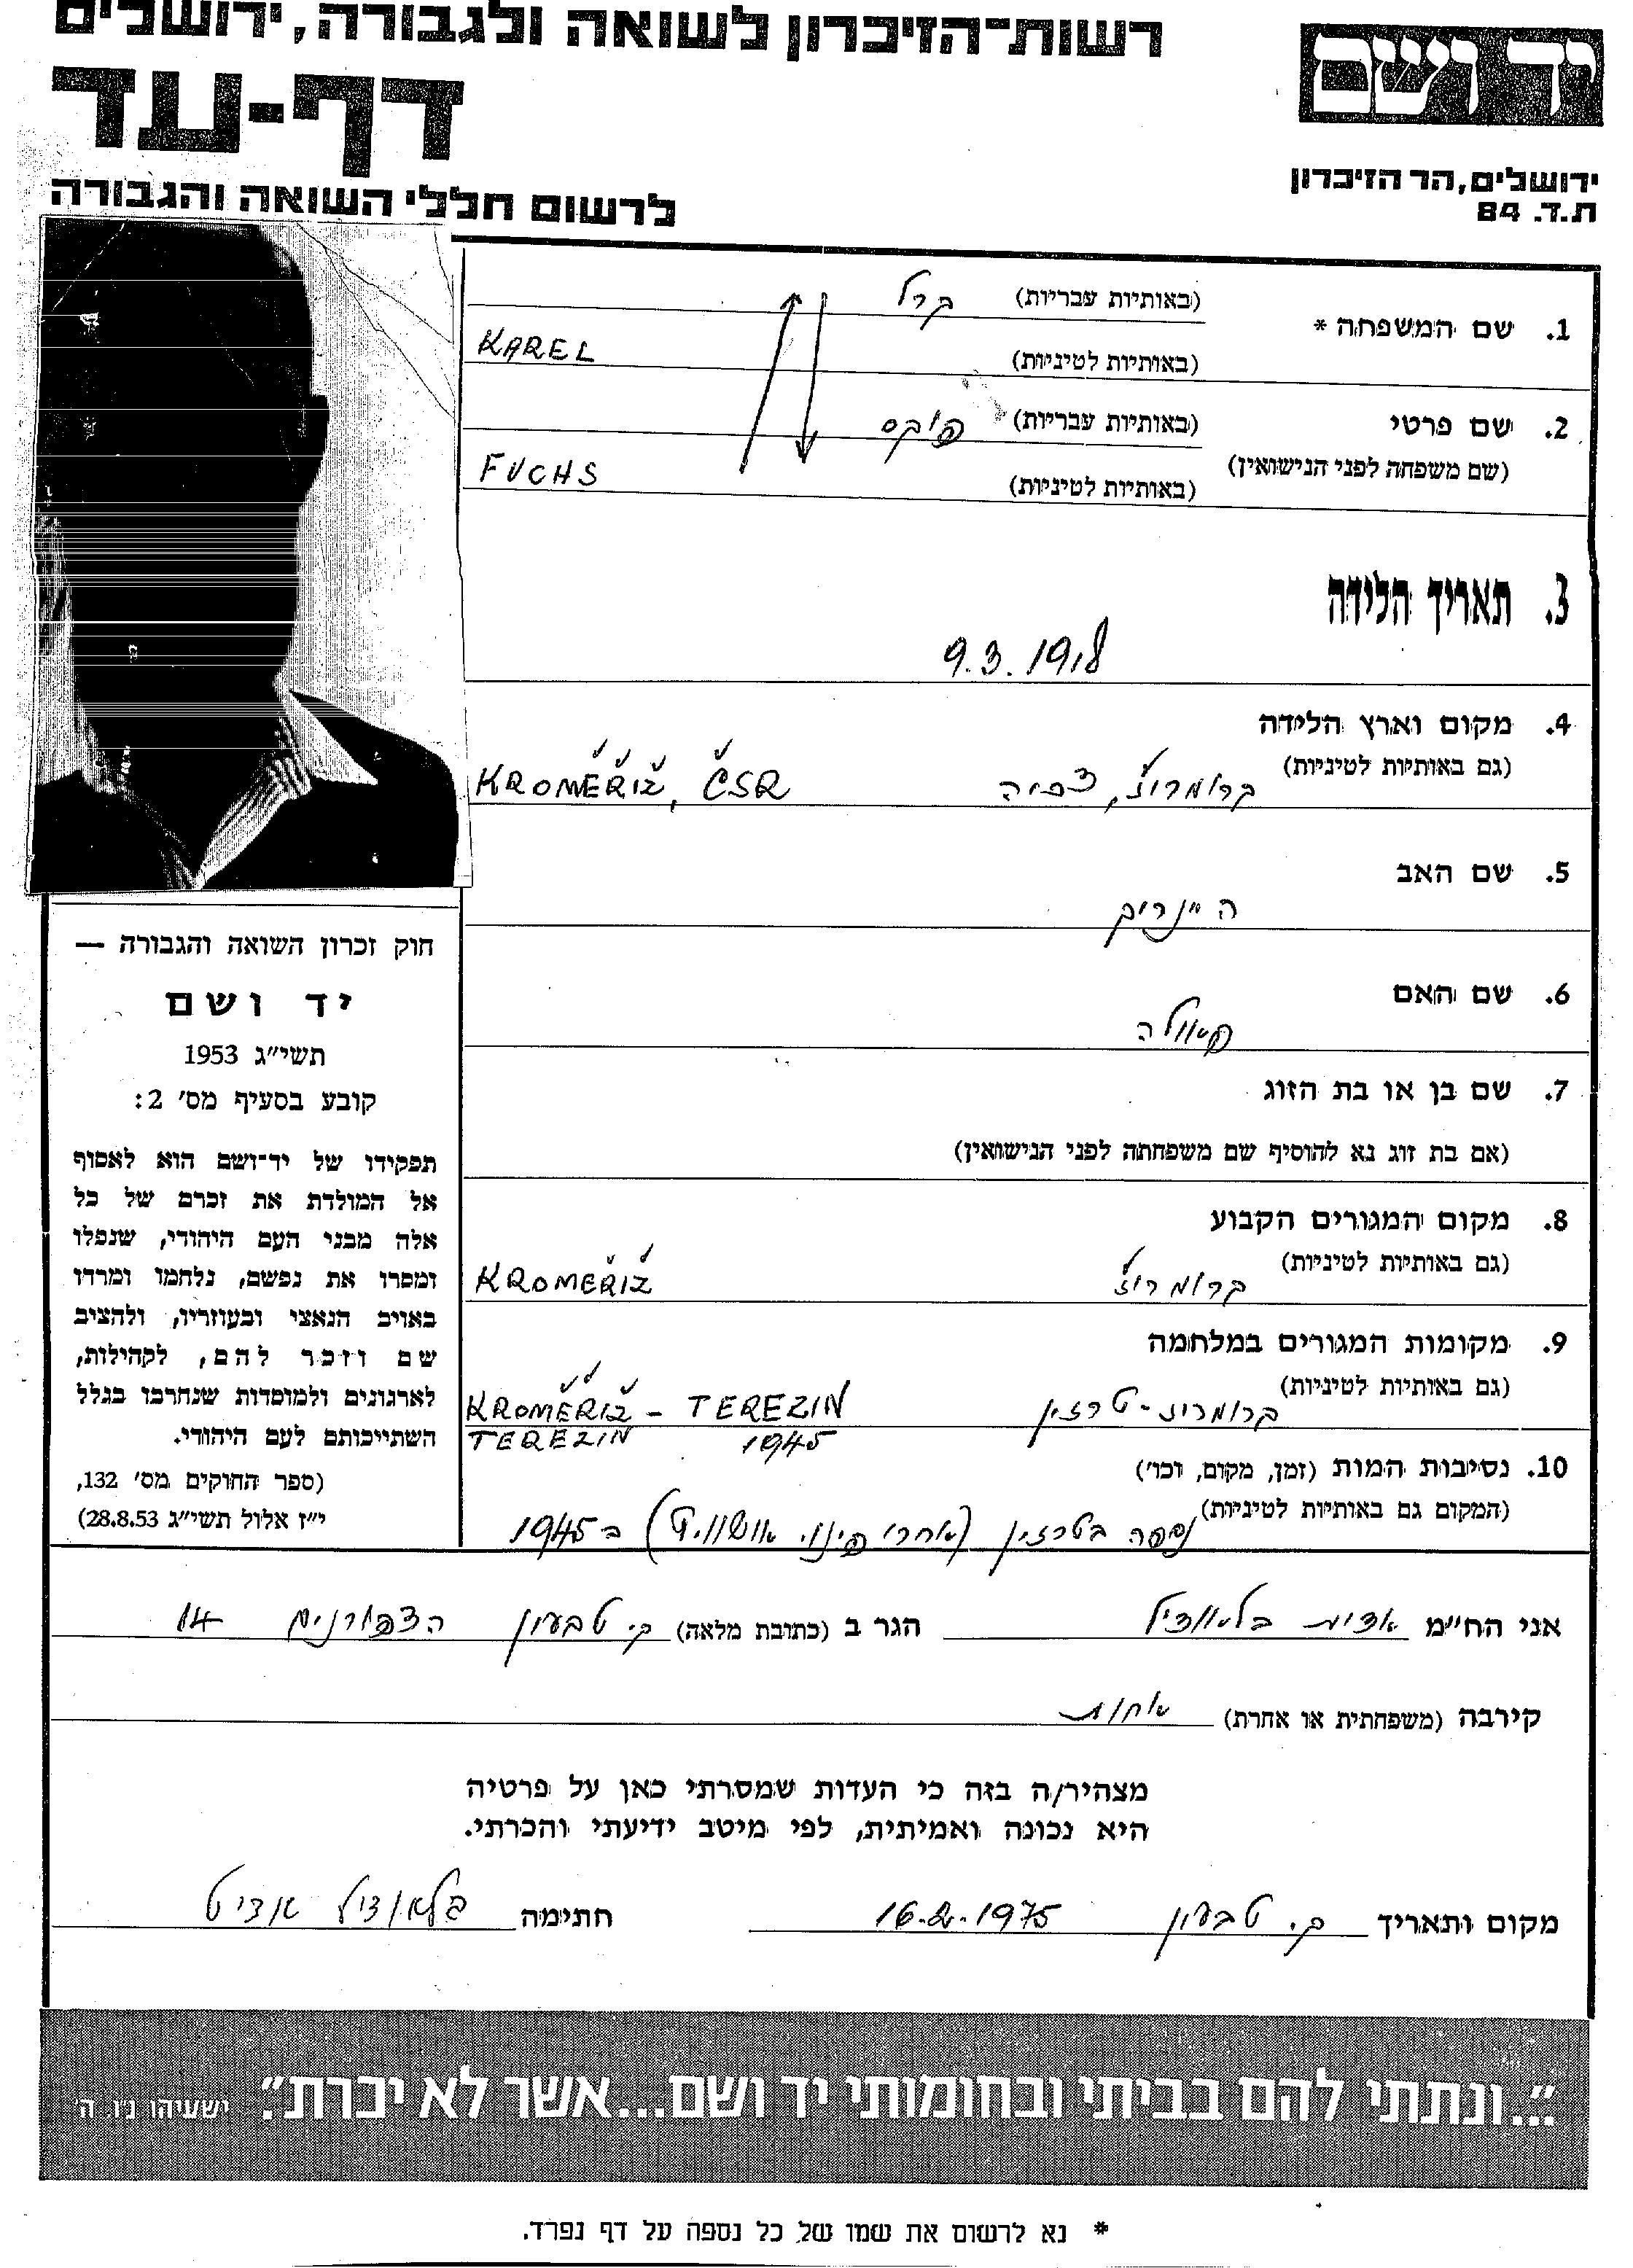 רשות־הזיכרון לשואה ולגבורה, ירושלים
יד ושם
דף-עד
ירושלים, הר הזיכרון
ת.ד. 84
לרשום חללי השואה והגבורה
1. שם המשפחה *
(באותיות עבריות) קרל
(באותיות לטיניות) KAREL
2. שם פרטי
(שם משפחה לפני הנישואין)
(באותיות עבריות) פוקס
(באותיות לטיניות) FUCHS
3. תאריך הלידה
9.3.1918
4. מקום וארץ הלידה
(גם באותיות לטיניות) קרומריז', צ'כיה KROMĚŘIŽ, ČSR
5. שם האב
היינריך
6. שם האם
פאולה
7. שם בן או בת הזוג
(אם בת זוג נא להוסיף שם משפחתה לפני הנישואין)
8. מקום המגורים הקבוע
(גם באותיות לטיניות) קרומריז' KROMĚŘIŽ
9. מקומות המגורים במלחמה
(גם באותיות לטיניות) קרומריז - טרזין KROMĚŘIŽ - TEREZIN
TEREZIN 1945
10. נסיבות המות (זמן, מקום, וכו')
(המקום גם באותיות לטיניות) נספה בטרזין (אחרי פינוי אושוויץ) ב 1945
חוק זכרון השואה והגבורה —
יד ושם
תשי״ג 1953
קובע בסעיף מס׳ 2:
תפקידו של יד־ושם הוא לאסוף
אל המולדת את זכרם של כל
אלה מבני העם היהודי, שנפלו
ומסרו את נפשם, נלחמו ומרדו
באויב הנאצי ובעוזריו, ולהציב
שם וזכר להם, לקהילות,
לארגונים ולמוסדות שנחרבו בגלל
השתייכותם לעם היהודי.
(ספר החוקים מס׳ 132,
י״ז אלול תשי״ג 28.8.53)
אני הח״מ אדית בלאודיל הגר ב (כתובת מלאה) ק. טבעון הצפורנים 14
קירבה (משפחתית או אחרת) אחות
מצהיר/ה בזה כי העדות שמסרתי כאן על פרטיה
היא נכונה ואמיתית, לפי מיטב ידיעתי והכרתי.
מקום ותאריך ק. טבעון 16.2.1975 חתימה אדיט
״...ונתתי להם בביתי ובחומותי יד ושם...אשר לא יכרת״. ישעיהו נ״ו. ה׳
* נא לרשום את שמו של כל נספה על דף נפרד.